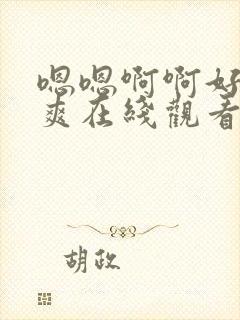 嗯嗯啊啊好
爽在綫觀看
胡政